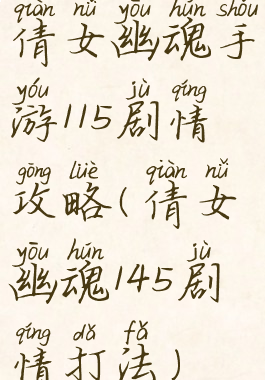 qiàn nǚ yōu hún shǒu
倩女幽魂手
yóu jù qíng
游115剧情
gōng lüè qiàn nǚ
攻略(倩女
yōu hún jù
幽魂145剧
qíng dǎ fǎ
情打法)